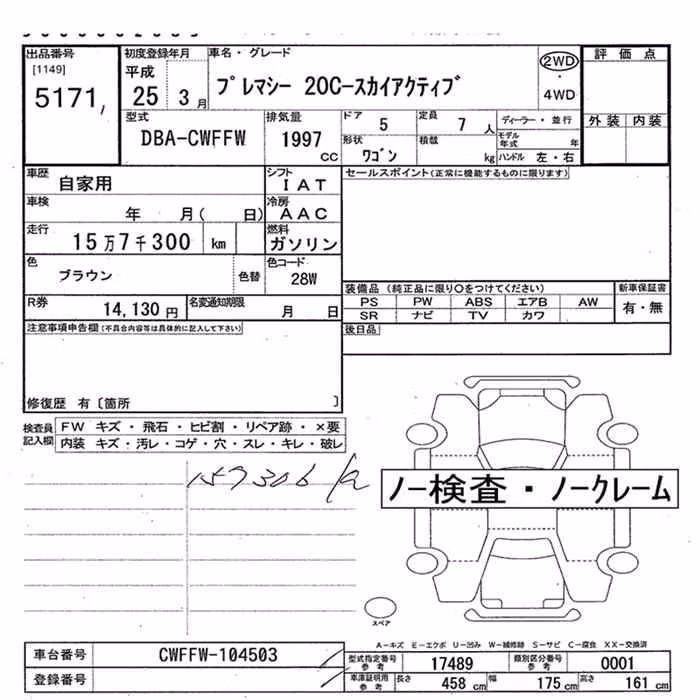 出品番号
[1149]
5171
初度登録年月
平成
25 3月
車名・グレード
プレマシー 20C-スカイアクティブ
2WD
・
4WD
評価点
外装 内装
型式
DBA-CWFFW
排気量
1997 cc
ドア 5
定員 7 人
形状 ワゴン
積載 kg
ディーラー・並行
モデル年式 年
ハンドル 左・右
車歴 自家用
シフト IAT
車検 年 月( 日)
冷房 AAC
走行 15万7千300 km
燃料 ガソリン
色 ブラウン 色替
色コード 28W
R券 14,130円
名変通知期限 月 日
セールスポイント(正常に機能するものに限ります)
装備品 (純正品に限り○をつけてください)
PS PW ABS エアB AW
SR ナビ TV カワ
新車保証書
有・無
後日品
注意事項申告欄(不具合内容等は具体的に記入して下さい)
修復歴 有〔箇所 〕
検査員記入欄
FW キズ・飛石・ヒビ割・リペア跡・×要
内装 キズ・汚レ・コゲ・穴・スレ・キレ・破レ
157306
ノー検査・ノークレーム
スペア
A-キズ E-エクボ U-凹み W-補修跡 S-サビ C-腐食 XX-交換済
車台番号 CWFFW-104503
登録番号
型式指定番号 参考 17489
類別区分番号 参考 0001
車庫証明用 参考 長さ 458 cm 幅 175 cm 高さ 161 cm